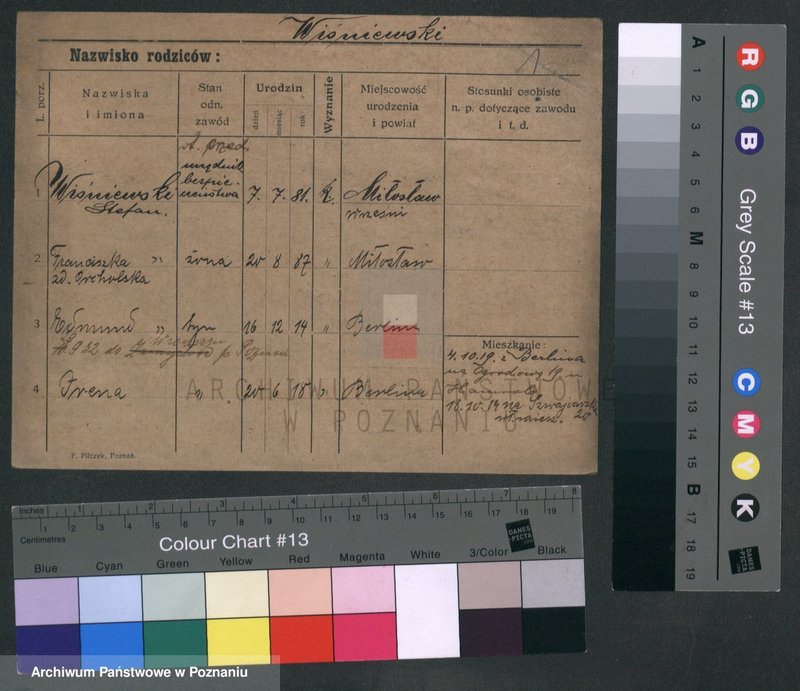 Wiśniewski
Nazwisko rodziców:
1
L. porz.
Nazwiska
i imiona
Stan
odn.
zawód
Urodzin
dzień
miesiąc
rok
Wyznanie
Miejscowość
urodzenia
i powiat
Stosunki osobiste
n. p. dotyczące zawodu
i t. d.
urzędnik
bezpie-
czeństwa
1 Wiśniewski 7. 7. 81. k. Miłosław
Stefan. Wrześni
2 Franciszka " żona 20 8 87 " Miłosław
zd.
3 Edmund " syn 16 12 14 " Berlina
9 32 do p. Poznań
4 Irena " 20 6 18 " Berlina
Mieszkanie:
4.10.19. z Berlina
na Ogrodową 19 u
18.10.19 na Szwajcarską
20
F. Pilczek, Poznań.
ARCHIWUM PAŃSTWOWE
W POZNANIU
Inches 1 2 3 4 5 6 7 8
Centimetres 1 2 3 4 5 6 7 8 9 10 11 12 13 14 15 16 17 18 19
Colour Chart #13
DANES
-PICTA
.COM
Blue Cyan Green Yellow Red Magenta White 3/Color Black
Archiwum Państwowe w Poznaniu
A 1 2 3 4 5 6 M 8 9 10 11 12 13 14 15 B 17 18 19
R G B
Grey Scale #13
C M Y K
DANES
-PICTA
.COM